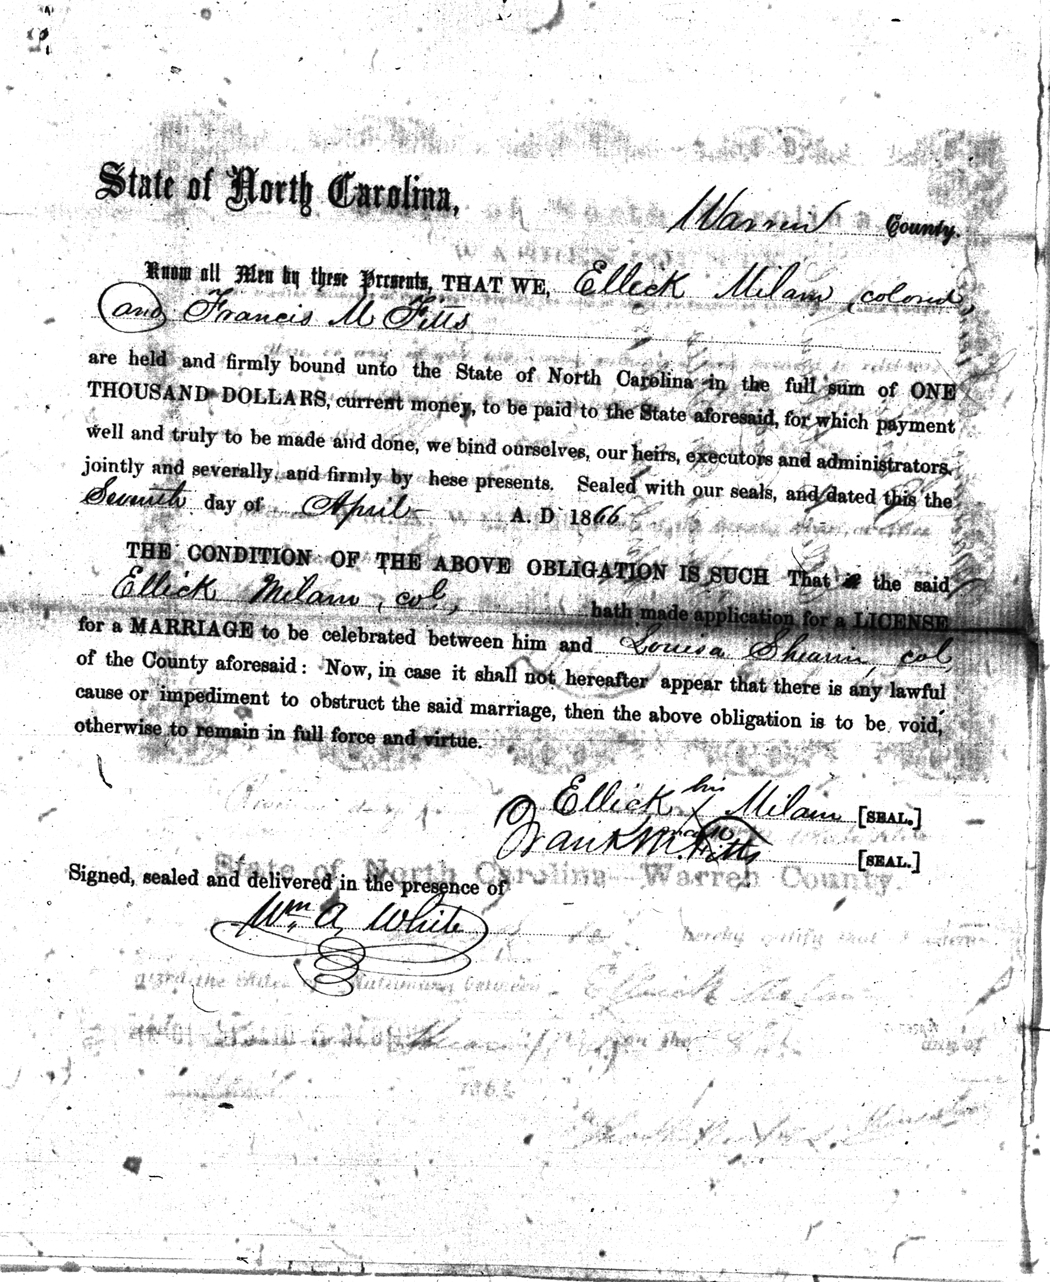 State of North Carolina,
Warren County.
Know all Men by these Presents, THAT WE, Ellick Milam, colored,
and Francis M Fitts
are held and firmly bound unto the State of North Carolina in the full sum of ONE
THOUSAND DOLLARS, current money, to be paid to the State aforesaid, for which payment
well and truly to be made and done, we bind ourselves, our heirs, executors and administrators,
jointly and severally, and firmly by hese presents. Sealed with our seals, and dated this the
Seventh day of April A. D 1866
THE CONDITION OF THE ABOVE OBLIGATION IS SUCH That the said
Ellick Milam, col, hath made application for a LICENSE
for a MARRIAGE to be celebrated between him and Louisa Shearin, col
of the County aforesaid: Now, in case it shall not hereafter appear that there is any lawful
cause or impediment to obstruct the said marriage, then the above obligation is to be void,
otherwise to remain in full force and virtue.
his
Ellick X Milam [SEAL.]
mark
Frank M. Fitts [SEAL.]
State of North Carolina—Warren County.
Signed, sealed and delivered in the presence of
Wm A White
hereby certify that I
the Rites of Matrimony between Ellick Milam
on the 8th
day of
1866